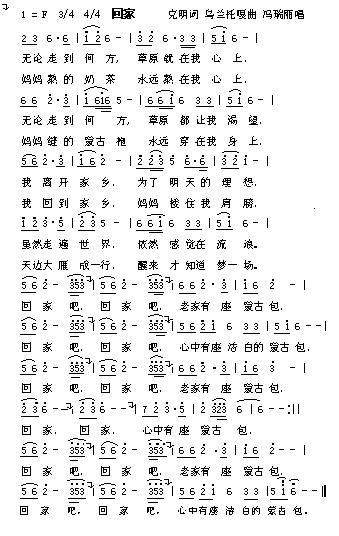 1 = F 3/4 4/4 回家 克明词 乌兰托嘎曲 冯瑞丽唱
2 3 6 · 6 | 1 2 6 - | 3 2 6 · 3 3 | 5 1 6 - |
无论 走 到 何 方, 草原 就 在我 心 上.
妈妈 熬 的 奶 茶 永远 熬 在我 心 上.
6 6 2 · 3 | 1 6 1 6 5 - | 6 6 1 6 3 3 | 5 1 6 - |
无论 走 到 何 方, 草原 都 让我 渴 望.
妈妈 缝 的 蒙古 袍 永远 穿 在我 身 上.
5 6 2 · 3 | 1 6 2 - | 2 2 3 5 6 · 6 | 3 2 1 - |
我 离 开 家 乡. 为了 明 天 的 理 想.
我 回 到 家 乡. 妈妈 搂 住 我 肩 膀.
1 2 3 · 5 | 2 3 5 - | 6 6 1 6 3 3 | 5 1 6 - |
虽然 走 遍 世 界. 依然 感 觉在 流 浪。
天边 大 雁 成一 行, 醒来 才 知道 梦一 场.
5 6 2 - 3 5 3 | 5 6 2 - 3 5 3 | 5 6 6 2 · 1 | 6 - - |
回 家 吧, 回 家 吧. 老家 有 座 蒙古 包.
5 6 2 - 3 5 3 | 5 6 2 - 3 5 3 | 5 6 2 1 6 3 3 | 5 1 6 - - |
回 家 吧, 回 家 吧. 心中 有座 洁 白的 蒙古 包.
5 6 2 - 3 5 3 | 5 6 2 - 3 5 3 | 5 6 6 2 · 1 | 6 - - |
回 家 吧, 回 家 吧. 老家 有 座 蒙古 包.
2 3 6 - - | 2 3 6 - - | 7 2 3 · 5 | 2 3 2 3 6 | 6 - - :||
回 家. 回 家. 心中 有 座 蒙古 包.
5 6 2 - 3 5 3 | 5 6 2 - 3 5 3 | 5 6 6 2 · 1 | 6 - - |
回 家 吧, 回 家 吧. 老家 有 座 蒙古 包.
5 6 2 - 3 5 3 | 5 6 2 - 3 5 3 | 5 6 2 1 6 3 3 | 5 1 6 - - ||
回 家 吧, 回 家 吧, 心中 有座 洁 白的 蒙古 包.